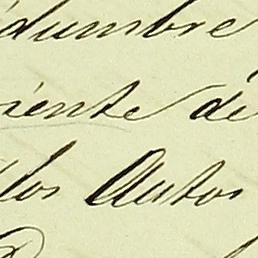 dumbre
iente de
los Autos